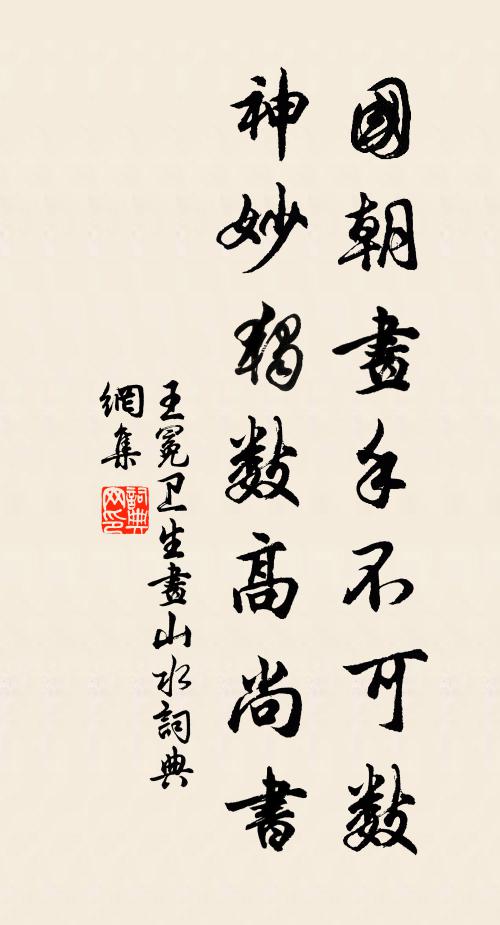 國朝畫手不可數
神妙獨數高尚書
王冕卫生畫山水詞典
網集
詞典
网印